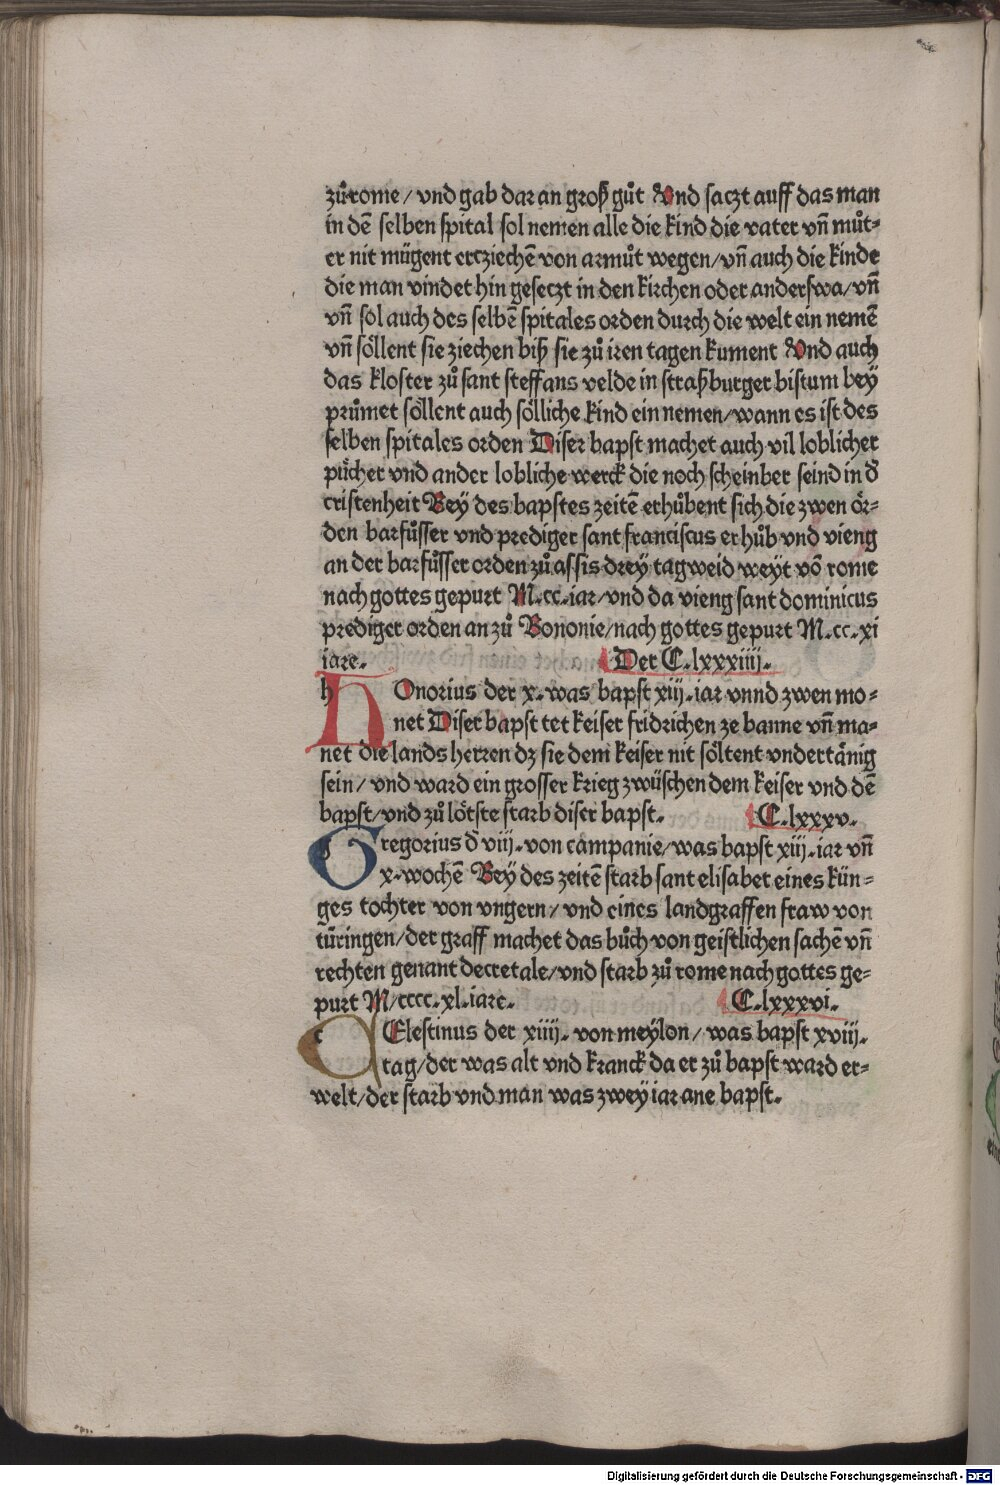 zůrome / vnd gab dar an groß gůt Vnd saczt auff das man
in dē selben spital sol nemen alle die kind die vater vn̄ můt-
er nit mügent ercziechē von armůt wegen / vn̄ auch die kinde
die man vindet hin geseczt in den kirchen oder anderswa / vn̄
vn̄ sol auch des selbē spitales orden durch die welt ein nemē
vn̄ söllent sie ziechen biß sie zů iren tagen kument Vnd auch
das kloster zů sant steffans velde in straßburger bistum bey
průmet söllent auch sölliche kind ein nemen / wann es ist des
selben spitales orden Diser bapst machet auch vil loblicher
pücher vnd ander lobliche werck die noch scheinber seind in đ
cristenheit Bey des bapstes zeitē erhůbent sich die zwen ör-
den barfůsser vnd prediger sant franciscus erhůb vnd vieng
an der barfůsser orden zů assis drey tagweid weyt vō rome
nach gottes gepurt M.cc.iar / vnd da vieng sant dominicus
prediger orden an zů Bononie / nach gottes gepurt M.cc.xi
iare. Der C.lxxxiiij.
hOnorius der x. was bapst xiij.iar vnnd zwen mo-
net Diser bapst tet keiser fridrichen ze banne vn̄ ma-
net die lands herren dz sie dem keiser nit söltent vndertänig
sein / vnd ward ein grosser krieg zwüschen dem keiser vnd dē
bapst / vnd zů lötste starb diser bapst. C.lxxxv.
Gregorius đ viij. von campanie / was bapst xiij.iar vn̄
x. wochē Bey des zeitē starb sant elisabet eines kün-
ges tochter von vngern / vnd eines landgraffen fraw von
türingen / der graff machet das bůch von geistlichen sachē vn̄
rechten genant decretale / vnd starb zů rome nach gottes ge-
purt M / cccc.xl.iare. C.lxxxvi.
CElestinus der xiiij. von meylon / was bapst xviij.
tag / der was alt vnd kranck da er zů bapst ward er-
welt / der starb vnd man was zwey iar ane bapst.
Digitalisierung gefördert durch die Deutsche Forschungsgemeinschaft - DFG